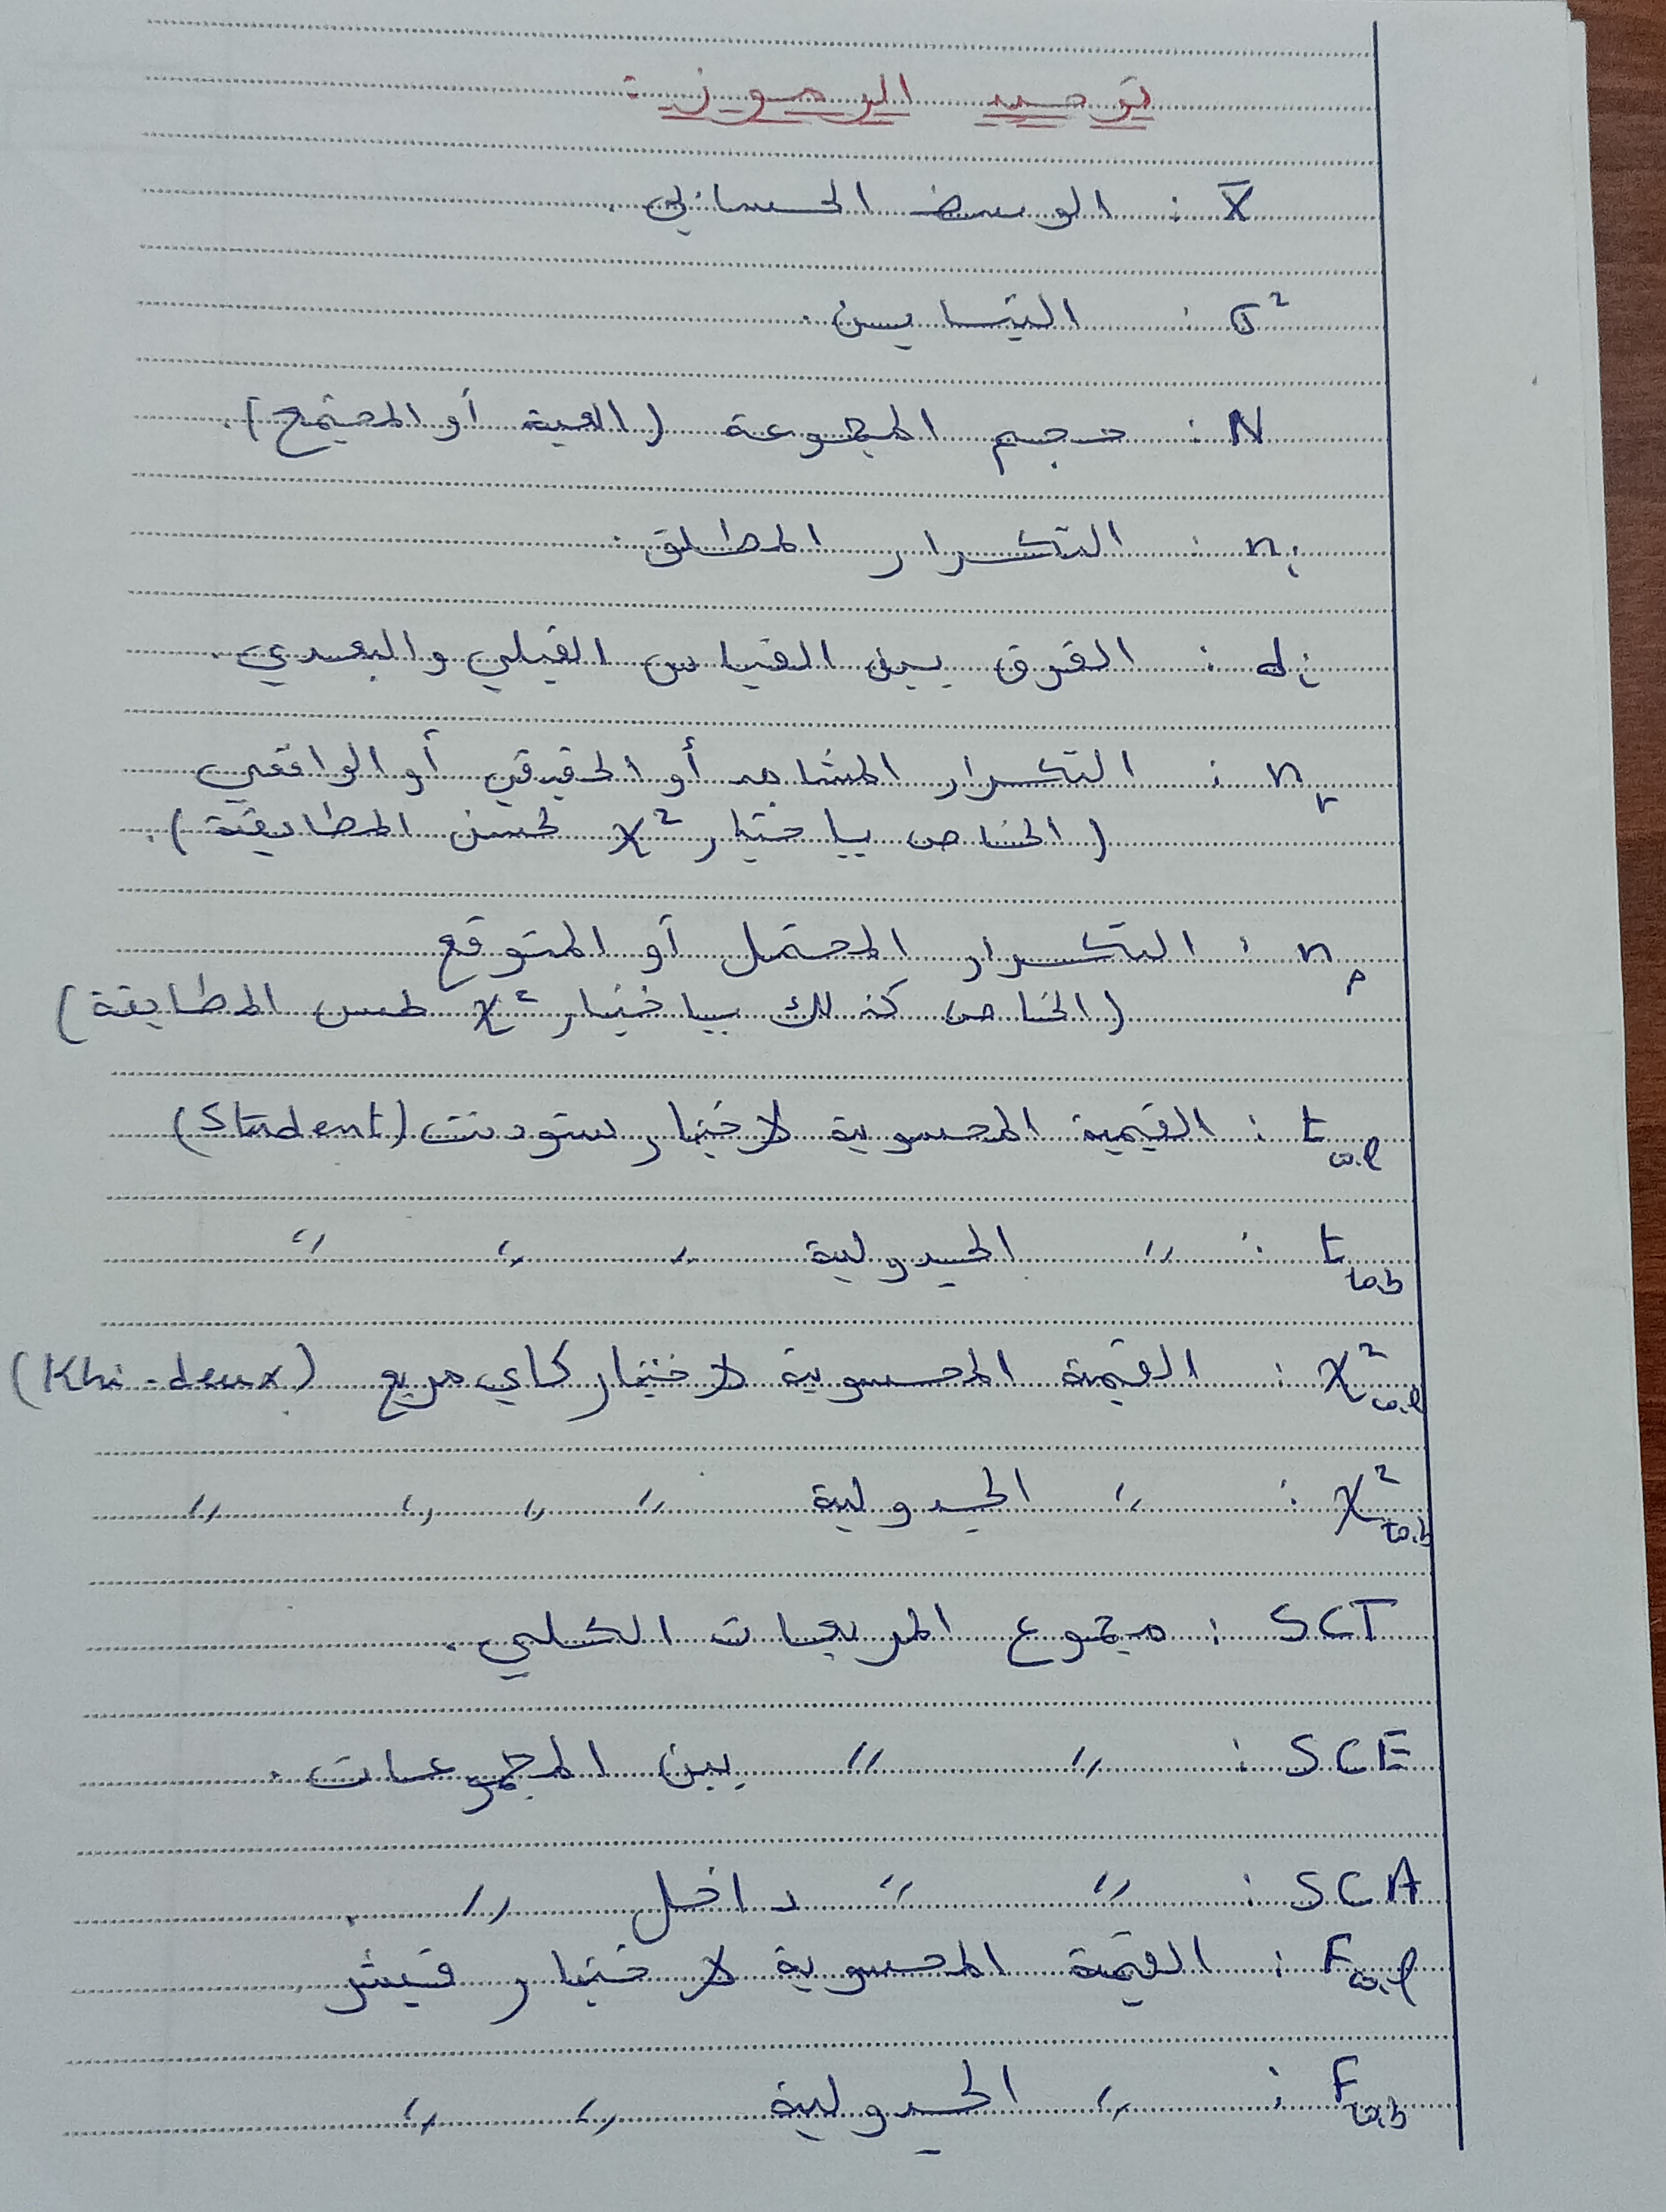 توحيد الرموز:
X̄ : الوسط الحسابي.
σ² : التباين.
N : حجم المجموعة (العينة أو المجتمع).
nᵢ : التكرار المطلق.
dᵢ : الفرق بين القياس القبلي والبعدي.
nᵣ : التكرار المشاهد أو الحقيقي أو الواقعي
(الخاص باختبار χ² لحسن المطابقة).
nₚ : التكرار المحتمل أو المتوقع
(الخاص كذلك باختبار χ² لحسن المطابقة)
t cal : القيمة المحسوبة لاختبار ستودنت (Student)
t tab : " الجدولية " " "
χ² cal : القيمة المحسوبة لاختبار كاي مربع (Khi-deux)
χ² tab : " الجدولية " " " "
SCT : مجموع المربعات الكلي.
SCE : " " بين المجموعات.
SCA : " " داخل " .
F cal : القيمة المحسوبة لاختبار فيشر
F tab : " الجدولية " "